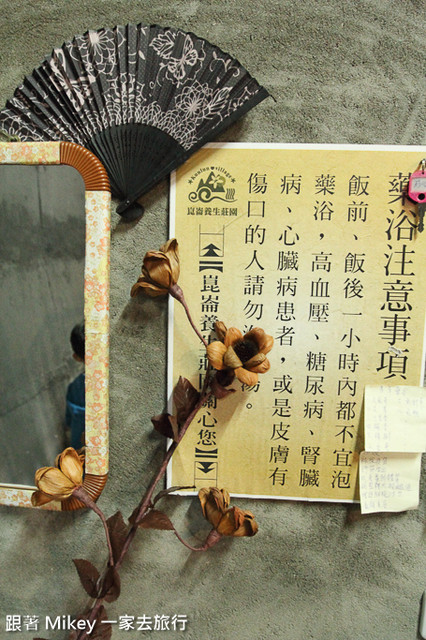 藥浴注意事項
飯前、飯後一小時內都不宜泡
藥浴，高血壓、糖尿病、腎臟
病、心臟病患者，或是皮膚有
傷口的人請勿
。
崑崙養生莊園
【崑崙養生莊 關心您】
跟著 Mikey 一家去旅行